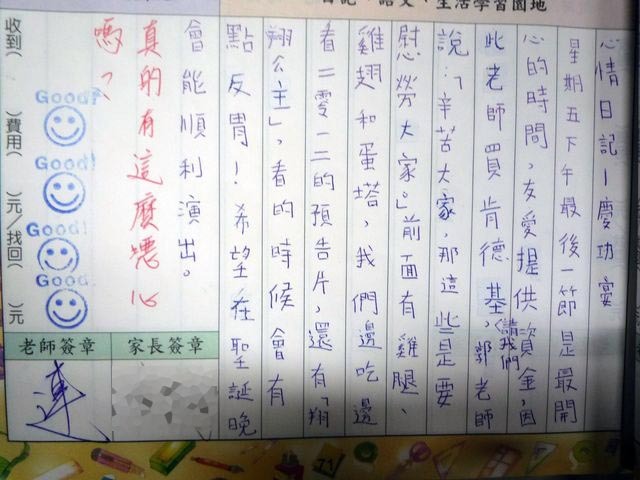 日記、語文、生活學習園地
心情日記－慶功宴
星期五下午最後一節是最開
心的時間，友愛提供資金，因
此老師買肯德基，請我們，郭老師
說：「辛苦大家，那這些是要
慰勞大家。」前面有雞腿、
雞翅和蛋塔，我們邊吃邊
看二零一二的預告片，還有「翔
翔公主」，看的時候會有
點反胃！希望在聖誕晚
會能順利演出。
真的有這麼噁心
嗎？
Good!
Good!
Good!
Good!
收到（　）費用（　）元／找回（　）元
家長簽章
老師簽章
連
71